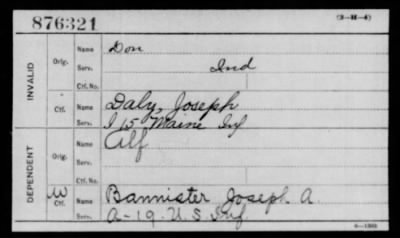 876321
(3-H-4)
INVALID
Orig.
Name
Don
Serv.
Ind
Ctf. No.
Ctf.
Name
Daly, Joseph
Serv.
I 15 Maine Inf
DEPENDENT
Orig.
Name
Alf
Serv.
Ctf. No.
W
Ctf.
Name
Bannister Joseph A.
Serv.
A-19. U.S Inf.